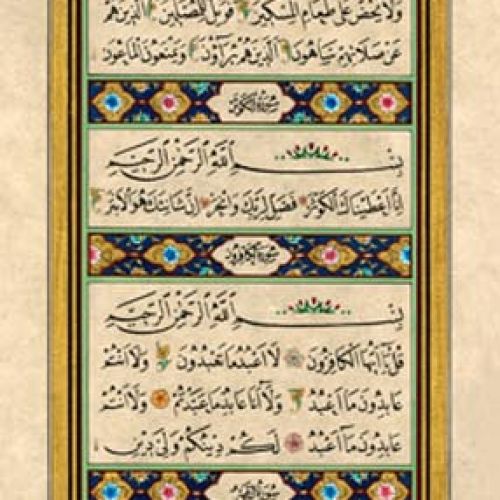 وَلَا يَحُضُّ عَلٰى طَعَامِ الْمِسْكِينِ فَوَيْلٌ لِلْمُصَلِّينَ اَلَّذِينَ هُمْ
عَنْ صَلَاتِهِمْ سَاهُونَ اَلَّذِينَ هُمْ يُرَاؤُنَ وَيَمْنَعُونَ الْمَاعُونَ
سُورَةُ الْكَوْثَرِ
بِسْمِ اللّٰهِ الرَّحْمٰنِ الرَّحِيمِ
اِنَّا اَعْطَيْنَاكَ الْكَوْثَرَ فَصَلِّ لِرَبِّكَ وَانْحَرْ اِنَّ شَانِئَكَ هُوَ الْاَبْتَرُ
سُورَةُ الْكَافِرُونَ
بِسْمِ اللّٰهِ الرَّحْمٰنِ الرَّحِيمِ
قُلْ يَا اَيُّهَا الْكَافِرُونَ لَا اَعْبُدُ مَا تَعْبُدُونَ وَلَا اَنْتُمْ
عَابِدُونَ مَا اَعْبُدُ وَلَا اَنَا عَابِدٌ مَا عَبَدْتُمْ وَلَا اَنْتُمْ
عَابِدُونَ مَا اَعْبُدُ لَكُمْ دِينُكُمْ وَلِيَ دِينِ
سُورَةُ